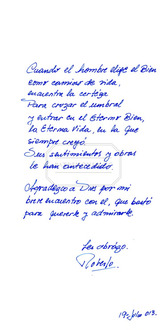 Cuando el hombre elige el Bien
como camino de vida,
encuentra la certeza
Para cruzar el umbral
y entrar en el Eterno Bien,
la Eterna Vida, en la que
siempre creyó
Sus sentimientos y obras
le han antecedido.
Agradezco a Dios por mi
breve encuentro con el, que bastó
para quererle y admirarle.
Un abrazo.
Roberto.
19-Julio 013.